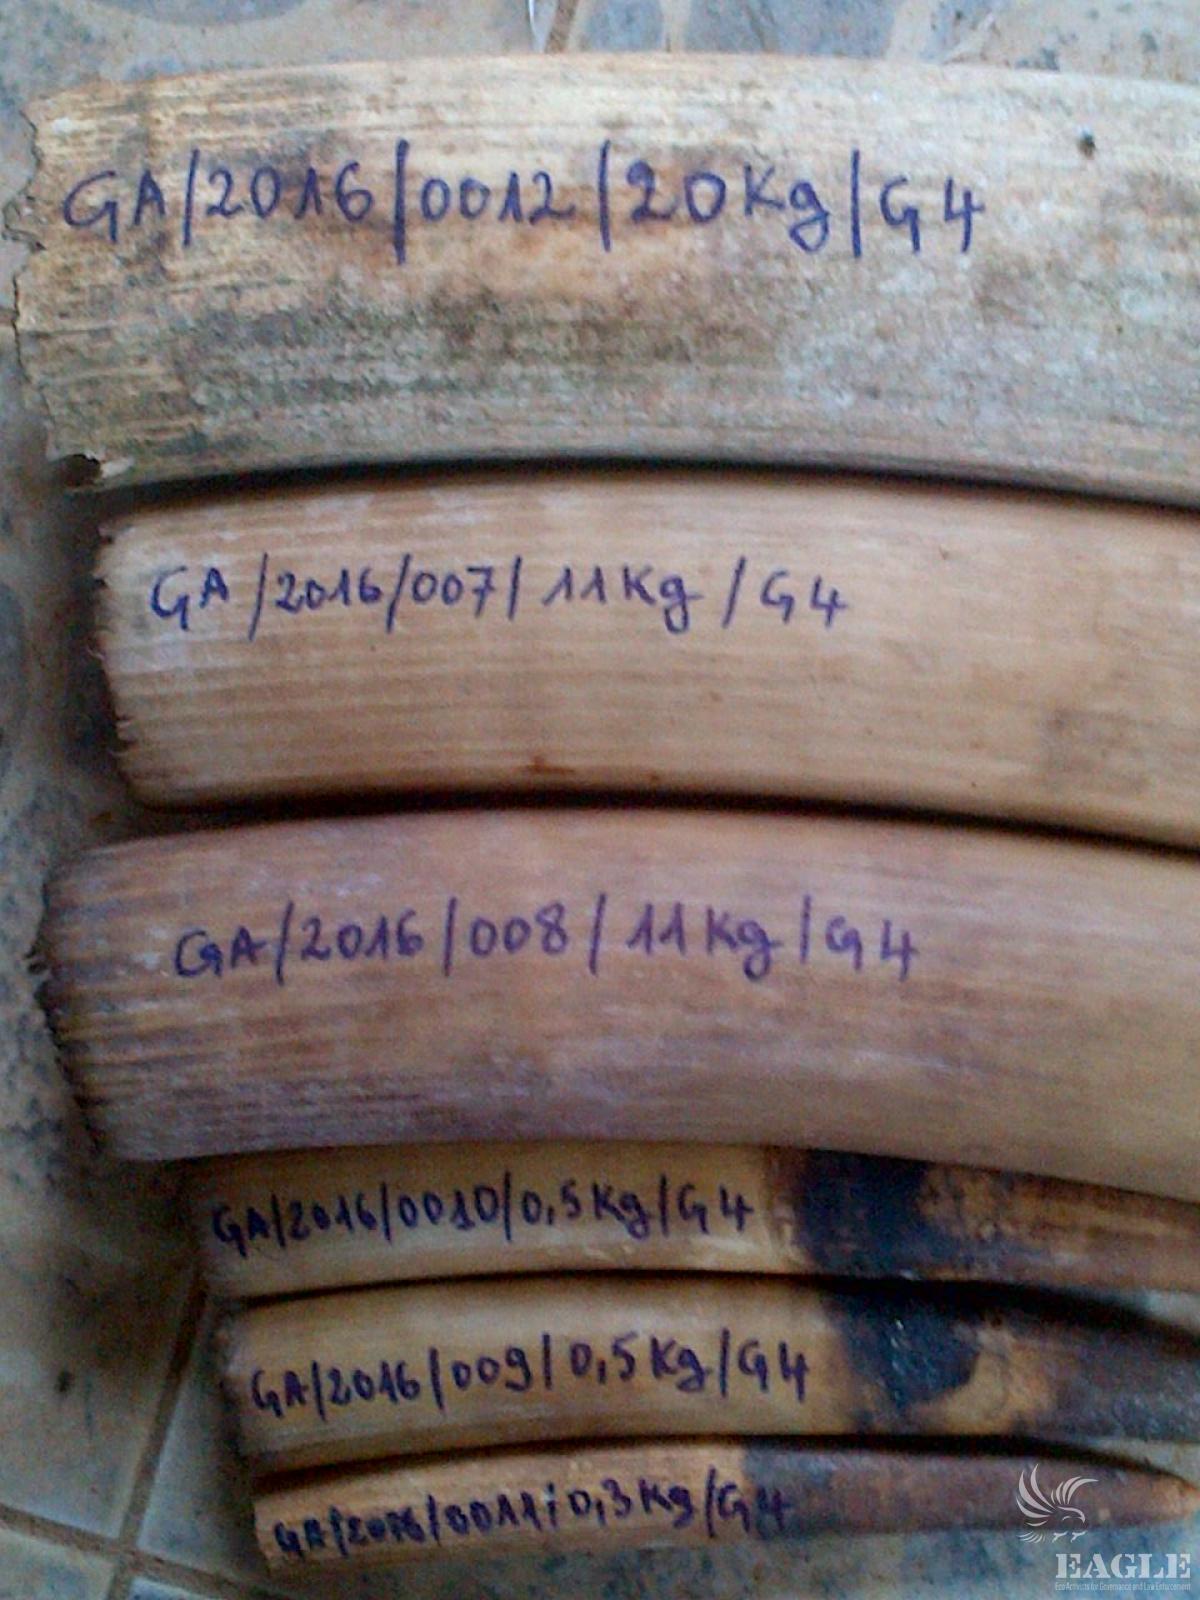 GA/2016/0012/20Kg/G4
GA/2016/007/11Kg/G4
GA/2016/008/11Kg/G4
GA/2016/0010/0,5Kg/G4
GA/2016/009/0,5Kg/G4
GA/2016/0011/0,3Kg/G4
EAGLE
Eco Activists for Governance and Law Enforcement